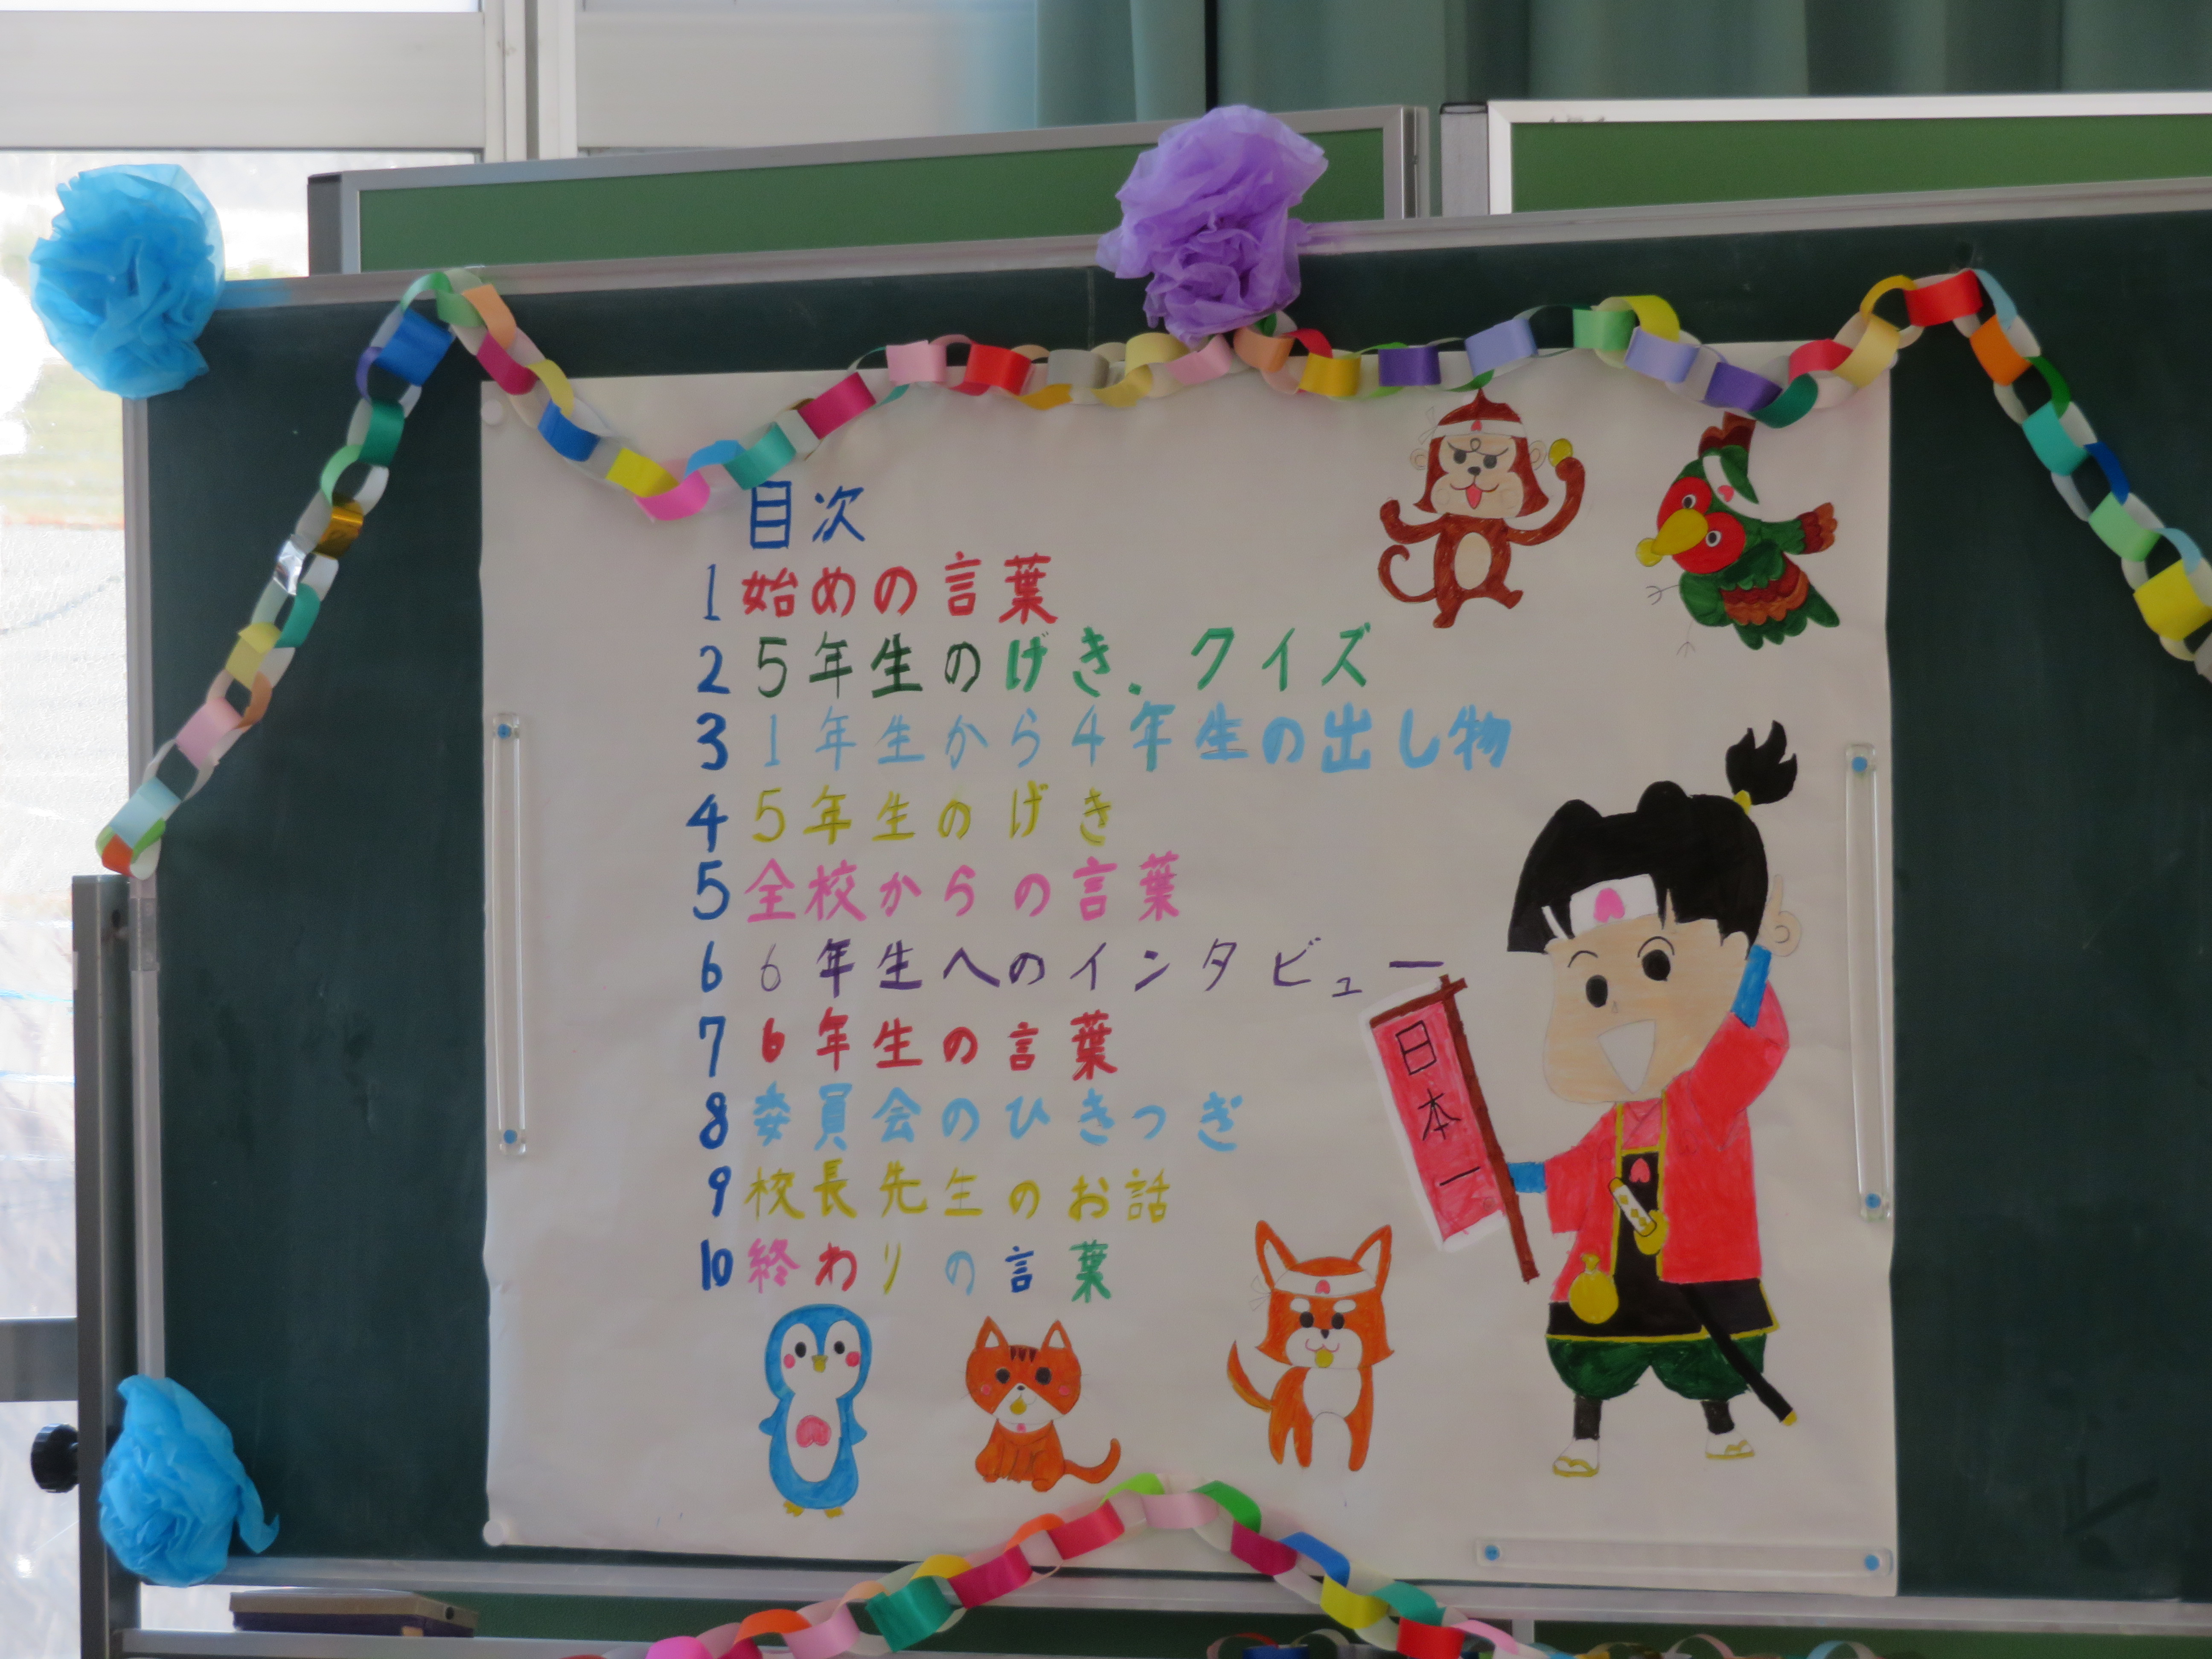 目次
1 始めの言葉
2 5年生のげき、クイズ
3 1年生から4年生の出し物
4 5年生のげき
5 全校からの言葉
6 6年生へのインタビュー
7 6年生の言葉
8 委員会のひきつぎ
9 校長先生のお話
10 終わりの言葉
日本一